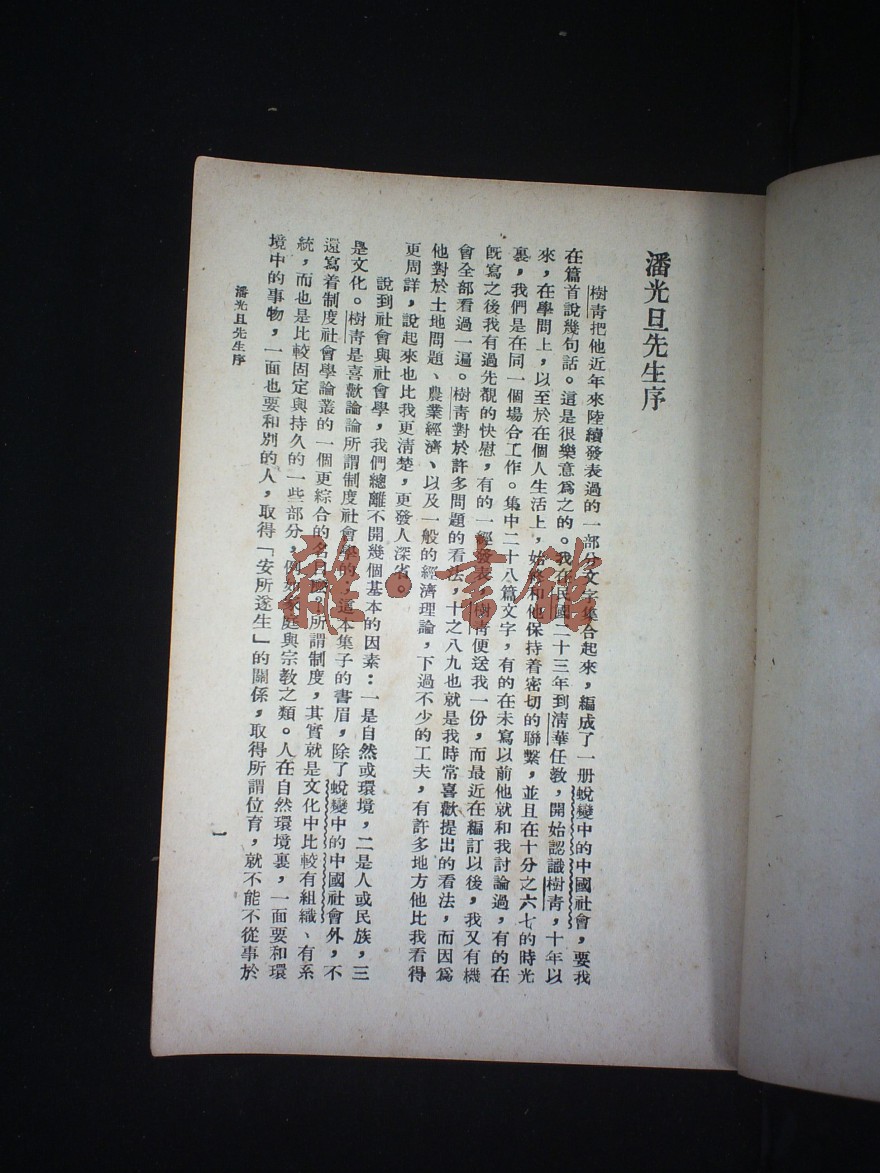 潘光旦先生序
樹青把他近年來陸續發表過的一部分文字集合起來，編成了一册蛻變中的中國社會，要我
在篇首說幾句話。這是很樂意爲之的。我在民國二十三年到清華任教，開始認識樹青，十年以
來，在學問上，以至於在個人生活上，始終和他保持着密切的聯繫，並且在十分之六七的時光
裏，我們是在同一個場合工作。集中二十八篇文字，有的在未寫以前他就和我討論過，有的在
旣寫之後我有過先覩的快慰，有的一經發表，樹青便送我一份，而最近在編訂以後，我又有機
會全部看過一遍。樹青對於許多問題的看法，十之八九也就是我時常喜歡提出的看法，而因爲
他對於土地問題、農業經濟、以及一般的經濟理論，下過不少的工夫，有許多地方他比我看得
更周詳，說起來也比我更清楚，更發人深省。
說到社會與社會學，我們總離不開幾個基本的因素：一是自然或環境，二是人或民族，三
是文化。樹青是喜歡論論所謂制度社會學的，這本集子的書眉，除了蛻變中的中國社會外，不
還寫着制度社會學論叢的一個更綜合的名目麽？所謂制度，其實就是文化中比較有組織、有系
統，而也是比較固定與持久的一些部分，例如家庭與宗教之類。人在自然環境裏，一面要和環
境中的事物，一面也要和別的人，取得「安所遂生」的關係，取得所謂位育，就不能不從事於
潘光旦先生序
一
雜·書館